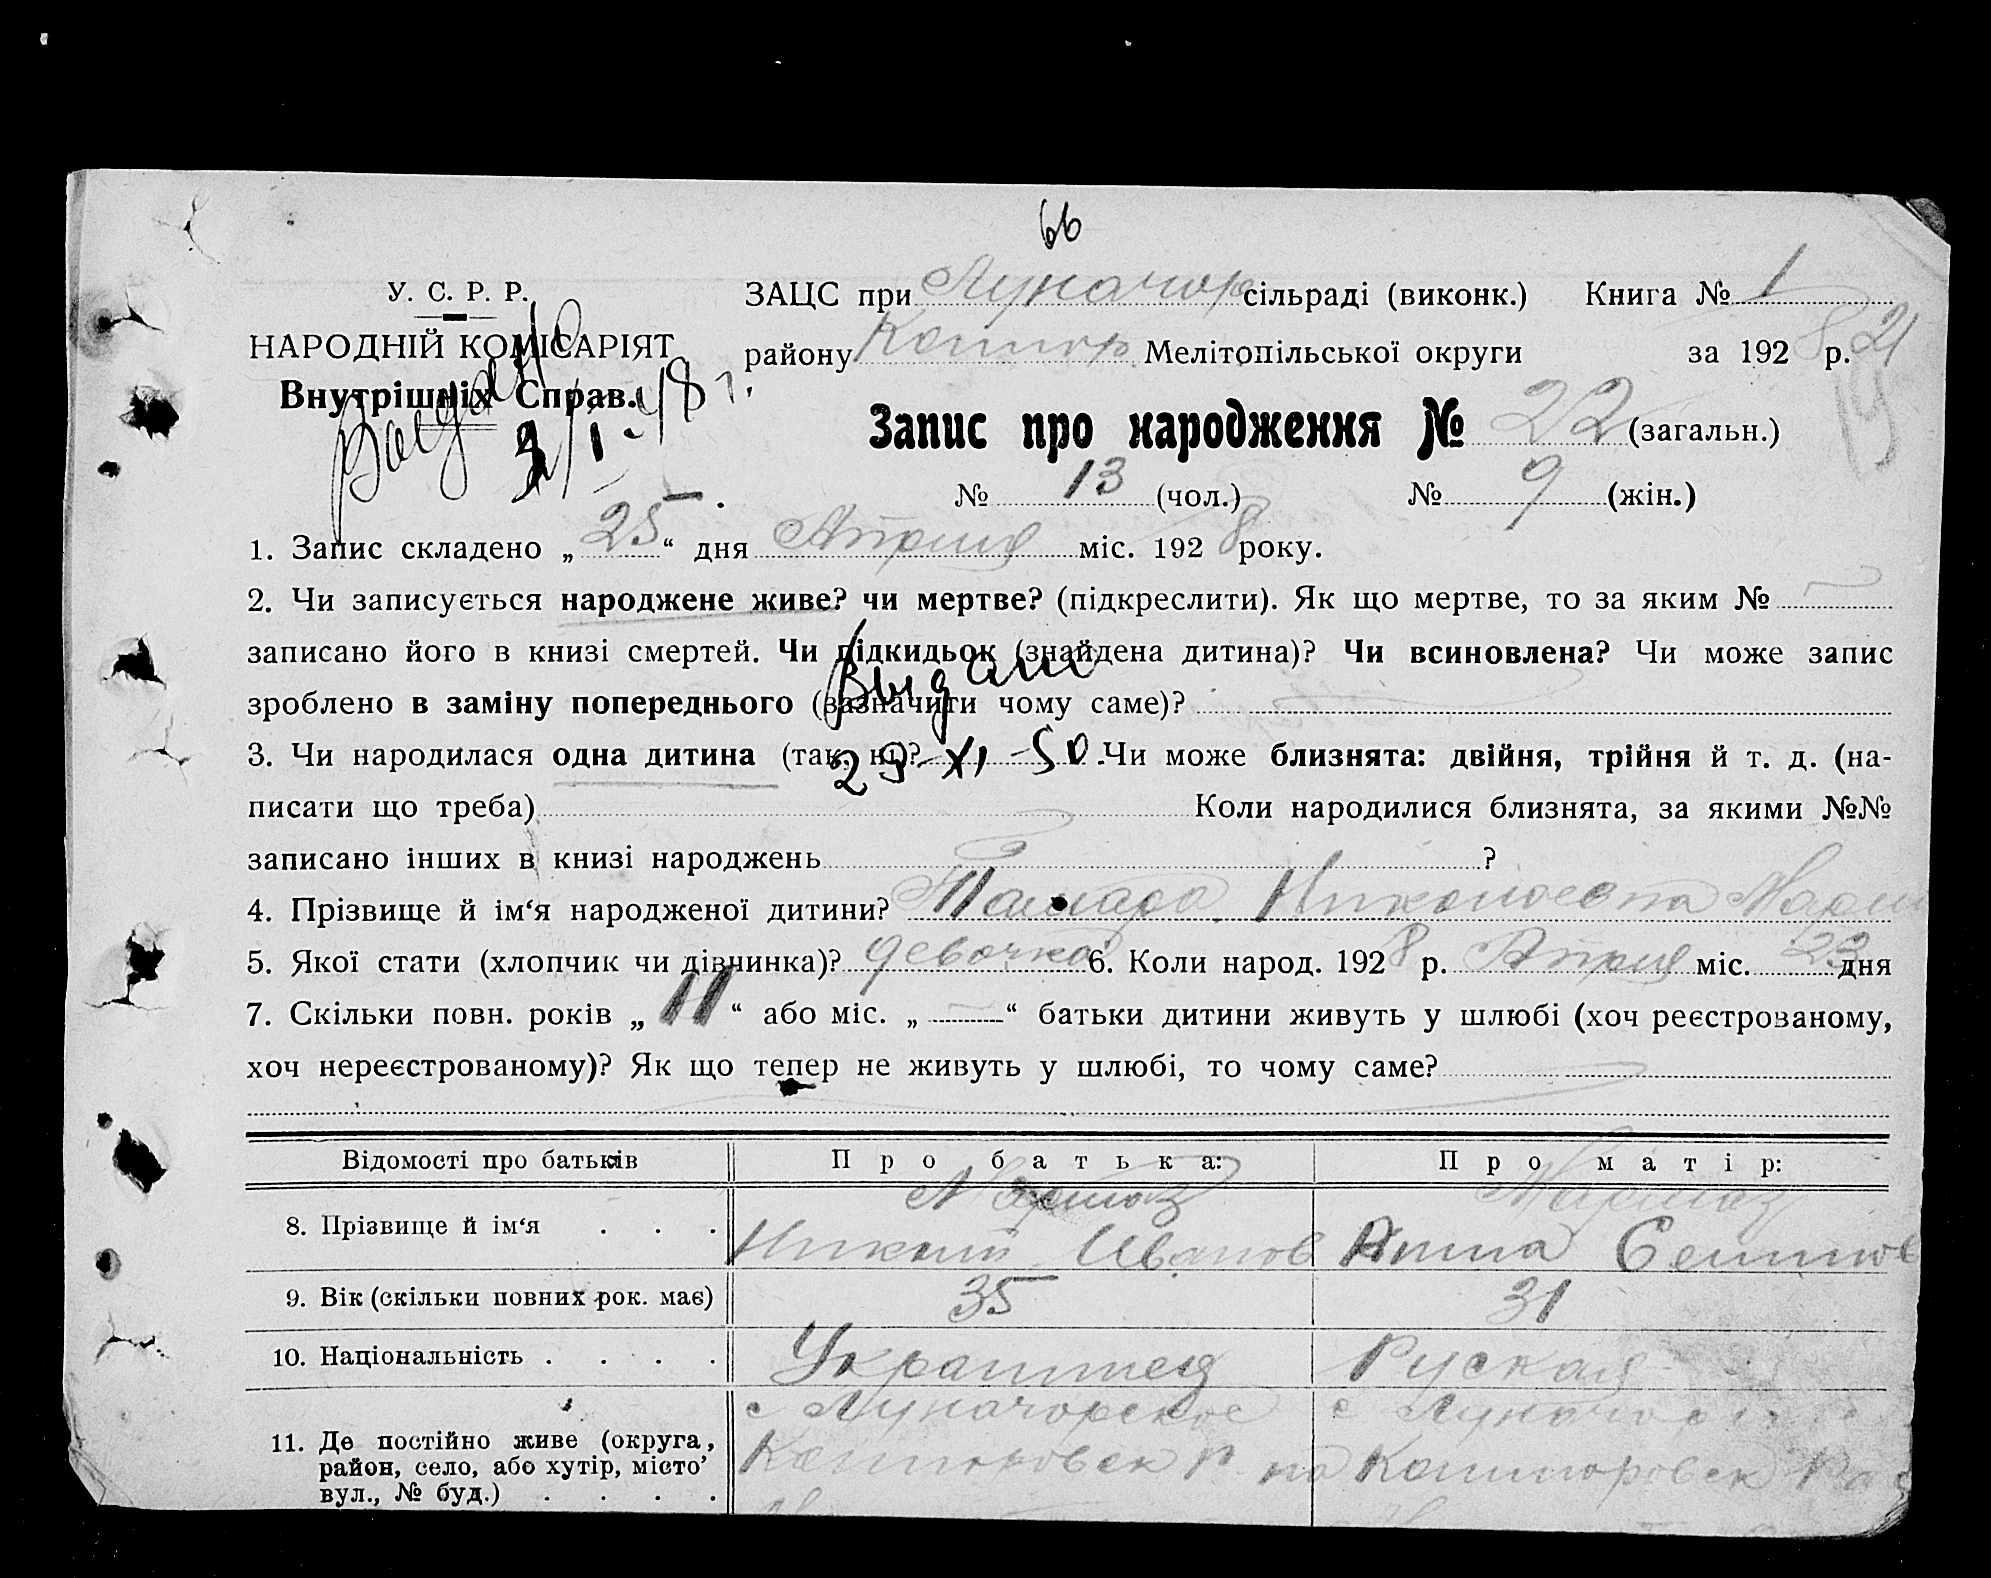 66
У. С. Р. Р.
НАРОДНІЙ КОМІСАРІЯТ
Внутрішніх Справ.
ЗАЦС при Луначор сільраді (виконк.) Книга № 1
району Мелітопільської округи за 1928 р. 21
Запис про народження № 22 (загальн.)
№ 13 (чол.) № 9 (жін.)
1. Запис складено „ 25 “ дня Априля міс. 1928 року.
2. Чи записується народжене живе? чи мертве? (підкреслити). Як що мертве, то за яким №
записано його в книзі смертей. Чи підкидьок (знайдена дитина)? Чи всиновлена? Чи може запис
Выдан
зроблено в заміну попереднього (зазначити чому саме)?
3. Чи народилася одна дитина (так, ні)? Чи може близнята: двійня, трійня й т. д. (на-
23-XI-50.
писати що треба) Коли народилися близнята, за якими №№
записано інших в книзі народжень ?
4. Прізвище й ім‘я народженої дитини? Тамара Николаевна
5. Якої стати (хлопчик чи дівчинка)? девочка 6. Коли народ. 1928 р. Априля міс. 23 дня
7. Скільки повн. років „ 11 “ або міс. „ — “ батьки дитини живуть у шлюбі (хоч реєстрованому,
хоч нереєстрованому)? Як що тепер не живуть у шлюбі, то чому саме?
Відомості про батьків Про батька: Про матір:
8. Прізвище й ім‘я . . . Иванов Анна
9. Вік (скільки повних рок. має) 35 31
10. Національність . . . . Украинец Руская
11. Де постійно живе (округа, район, село, або хутір, місто’ вул., № буд.) . . . . с Луначорское с